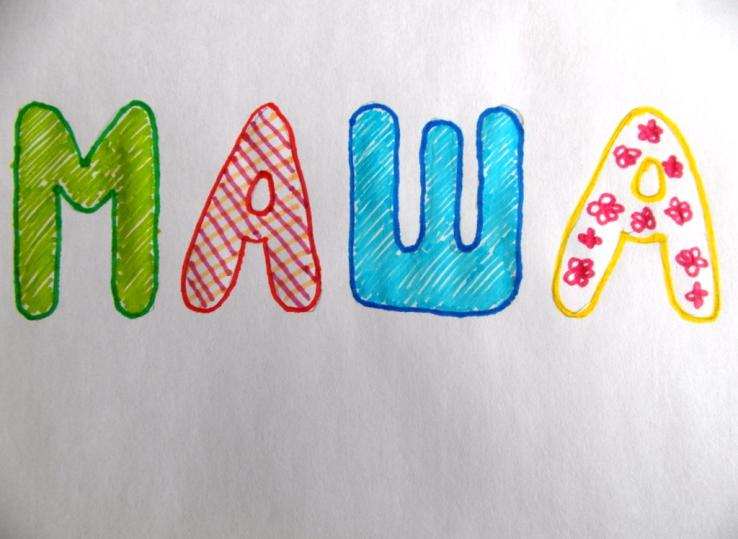 МАША